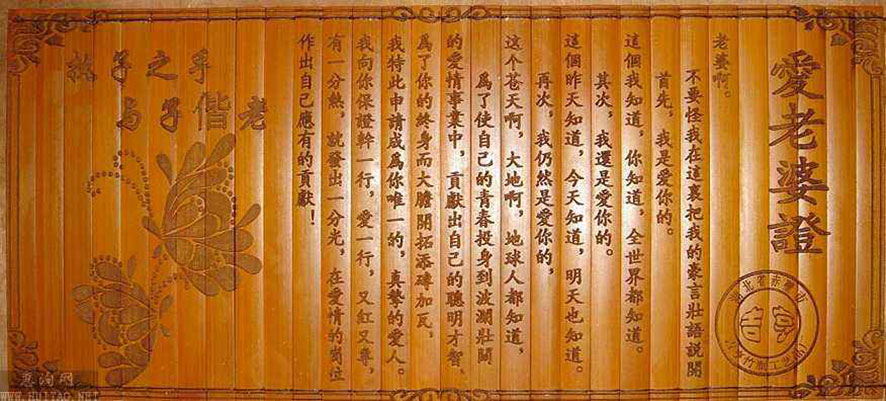 愛老婆證
湖北省赤壁市
老婆啊。
不要怪我在這裏把我的豪言壯語説開
首先，我是愛你的。
這個我知道，你知道，全世界都知道。
其次，我還是愛你的。
這個昨天知道，今天知道，明天也知道。
再次，我仍然是愛你的，
这个苍天啊，大地啊，地球人都知道，
爲了使自己的青春投身到波瀾壯闊
的愛情事業中，貢獻出自己的聰明才智，
爲了你的終身而大膽開拓添磚加瓦，
我特此申請成爲你唯一的，真摯的愛人。
我向你保證幹一行，愛一行，又紅又專，
有一分熱，就發出一分光，在愛情的崗位
作出自己應有的貢獻！
执子之手
与子偕老
惠淘网
WWW.HUITAO.NET